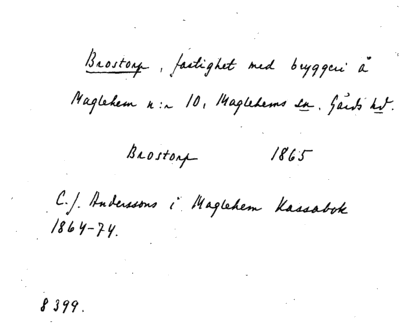 Brostorp, fastighet med bryggeri å
Maglehem n:r 10, Maglehems sn. Gärds hd.
Brostorp 1865
C. J. Anderssons i Maglehem Kassabok
1864-74.
8399.